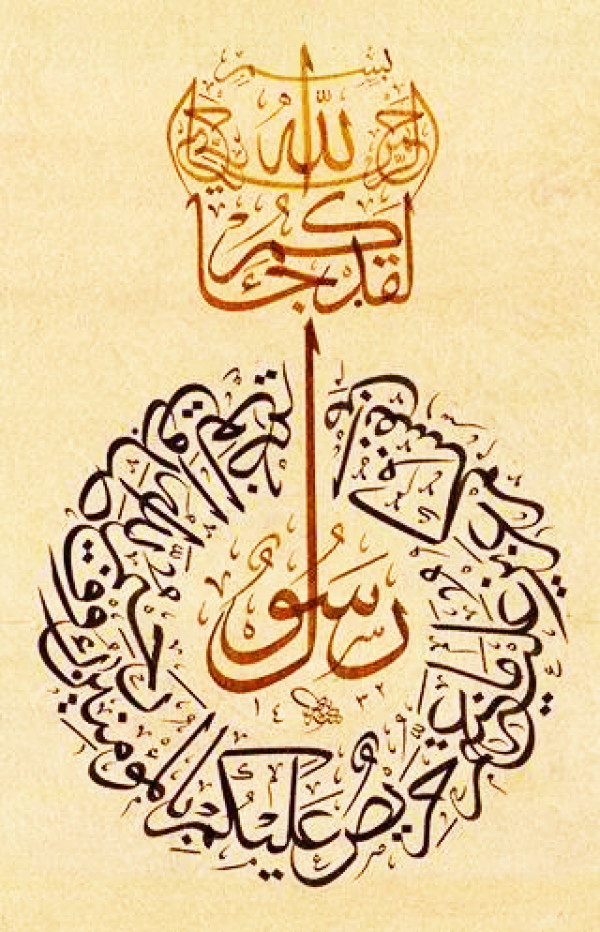 بِسْمِ
اللّٰه الرحمن الرحيم
لَقَدْ جَاءَكُمْ
رَسُولٌ
من أنفسكم عزيز عليه ما عنتم حريصٌ عَلَيْكُمْ بالمؤمنين رءوف رحيم
١٤٣٢